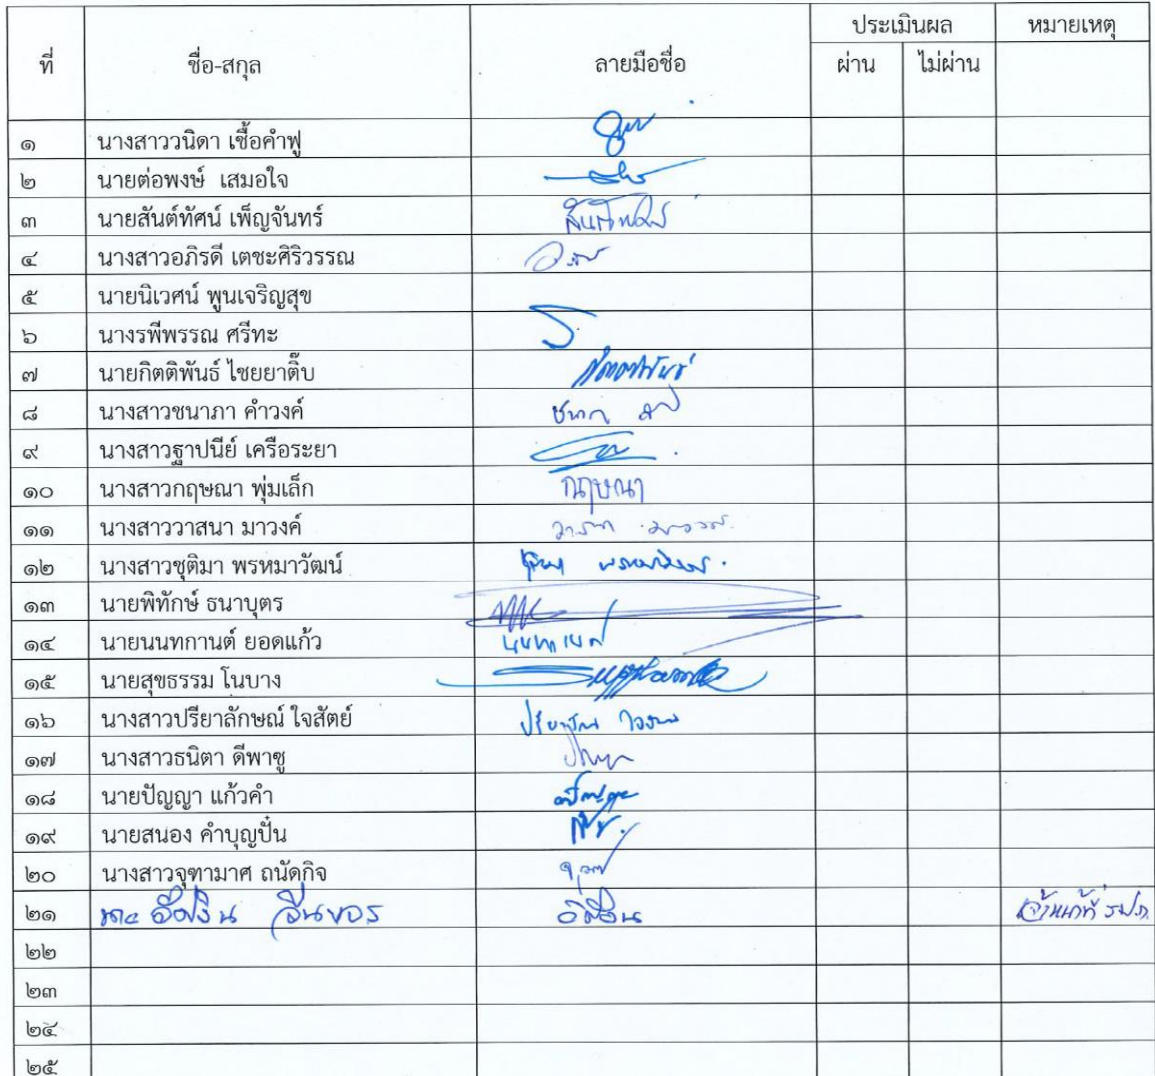 ที่ ชื่อ-สกุล ลายมือชื่อ ประเมินผล หมายเหตุ
ผ่าน ไม่ผ่าน
๑ นางสาววนิดา เชื้อคำฟู
๒ นายต่อพงษ์ เสมอใจ
๓ นายสันต์ทัศน์ เพ็ญจันทร์ สันต์ทัศน์
๔ นางสาวอภิรดี เตชะศิริวรรณ
๕ นายนิเวศน์ พูนเจริญสุข
๖ นางรพีพรรณ ศรีทะ
๗ นายกิตติพันธ์ ไชยยาติ๊บ กิตติพันธ์
๘ นางสาวชนาภา คำวงค์
๙ นางสาวฐาปนีย์ เครือระยา
๑๐ นางสาวกฤษณา พุ่มเล็ก กฤษณา
๑๑ นางสาววาสนา มาวงค์ วาสนา มาวงค์
๑๒ นางสาวชุติมา พรหมาวัฒน์
๑๓ นายพิทักษ์ ธนาบุตร
๑๔ นายนนทกานต์ ยอดแก้ว
๑๕ นายสุขธรรม โนบาง
๑๖ นางสาวปรียาลักษณ์ ใจสัตย์
๑๗ นางสาวธนิตา ดีพาชู
๑๘ นายปัญญา แก้วคำ
๑๙ นายสนอง คำบุญปั๋น
๒๐ นางสาวจุฑามาศ ถนัดกิจ
๒๑ เจ้าหน้าที่ รปภ.
๒๒
๒๓
๒๔
๒๕